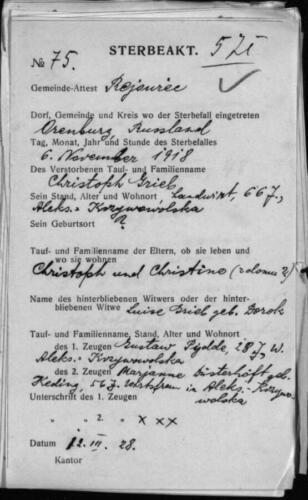 STERBEAKT.
№ 75.
Gemeinde-Attest Rejowiec
Dorf, Gemeinde und Kreis wo der Sterbefall eingetreten
Orenburg, Russland
Tag, Monat, Jahr und Stunde des Sterbefalles
6. November 1918
Des Verstorbenen Tauf- und Familienname
Christoph Grieb,
Sein Stand, Alter und Wohnort Landwirt, 66 J.,
Aleks.- Krzywowolska
Sein Geburtsort ?
Tauf- und Familienname der Eltern, ob sie leben und
wo sie wohnen
Christoph und Christine
Name des hinterbliebenen Witwers oder der hinter-
bliebenen Witwe Luise Grieb geb.
Tauf- und Familienname, Stand, Alter und Wohnort
des 1. Zeugen Gustaw 28 J, W.
Aleks.- Krzywowolska
des 2. Zeugen Marjanne Bisterhoft geb.
Keding, 56 J. in Aleks.- Krzywo-
wolska
Unterschrift des 1. Zeugen
„ „ 2. „ x xx
Datum 12. III. 28.
Kantor